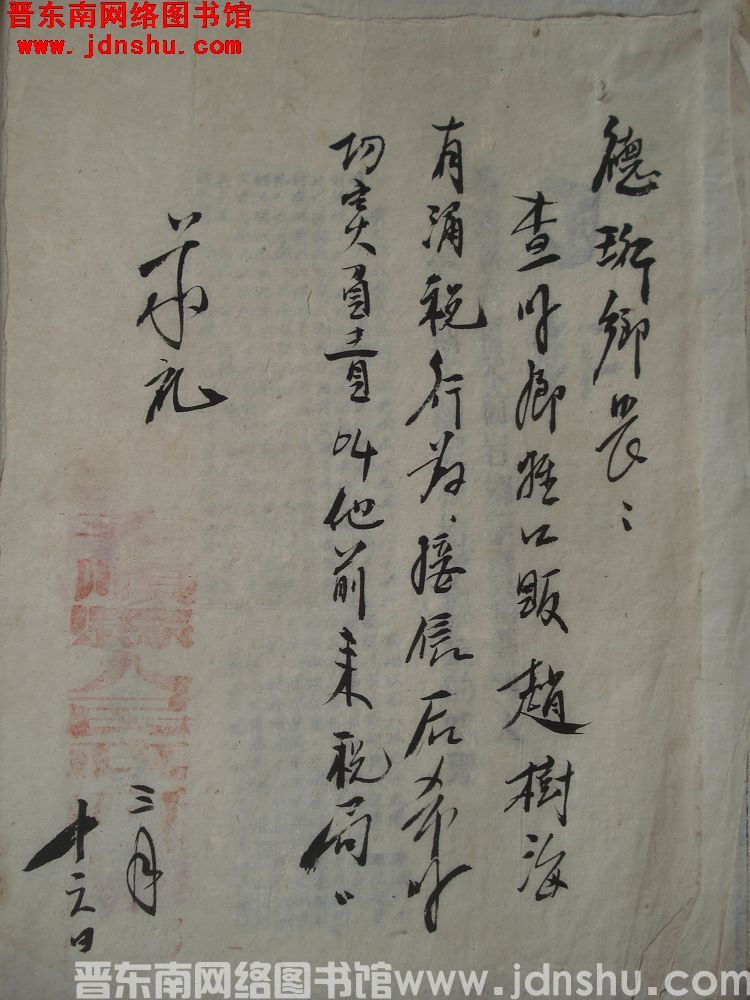 晋东南网络图书馆
www.jdnshu.com
德珩鄉長:
查 鄉 口販趙樹海
有漏税行為、接信后希
切实 責叫他前来税局。
此礼
縣人民政
三月
十六日
晋东南网络图书馆www.jdnshu.com